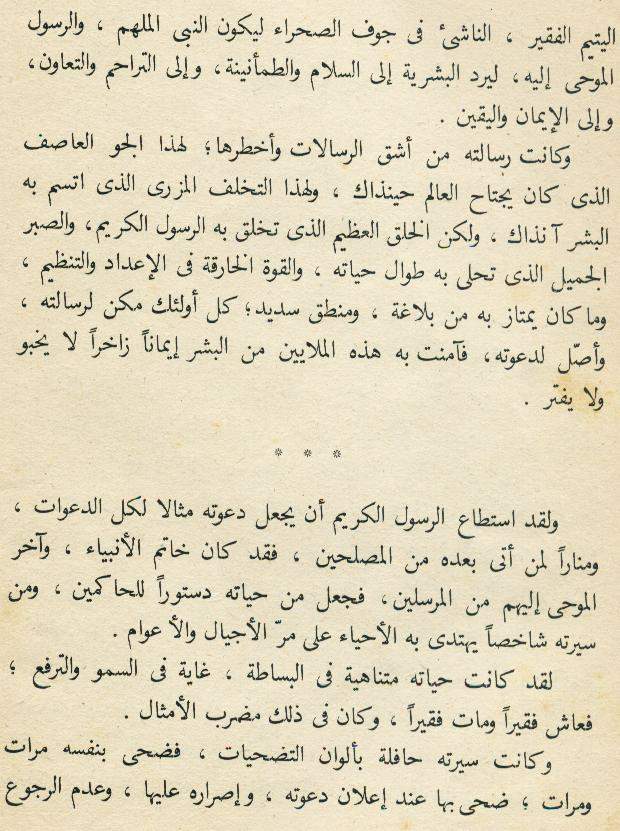 اليتيم الفقير ، الناشئ فى جوف الصحراء ليكون النبى الملهم ، والرسول
الموحى إليه، ليرد البشرية إلى السلام والطمأنينة، وإلى التراحم والتعاون،
وإلى الإيمان واليقين .
وكانت رسالته من أشق الرسالات وأخطرها؛ لهذا الجو العاصف
الذى كان يجتاح العالم حينذاك ، ولهذا التخلف المزرى الذى اتسم به
البشر آنذاك ، ولكن الخلق العظيم الذى تخلق به الرسول الكريم، والصبر
الجميل الذى تحلى به طوال حياته ، والقوة الخارقة فى الإعداد والتنظيم ،
وما كان يمتاز به من بلاغة ، ومنطق سديد؛ كل أولئك مكن لرسالته ،
وأصّل لدعوته، فآمنت به هذه الملايين من البشر إيماناً زاخراً لا يخبو
ولا يفتر .
* * *
ولقد استطاع الرسول الكريم أن يجعل دعوته مثالا لكل الدعوات ،
ومناراً لمن أتى بعده من المصلحين ، فقد كان خاتم الأنبياء ، وآخر
الموحى إليهم من المرسلين، فجعل من حياته دستوراً للحاكمين ، ومن
سيرته شاخصاً يهتدى به الأحياء على مرّ الأجيال والأعوام .
لقد كانت حياته متناهية فى البساطة ، غاية فى السمو والترفع ؛
فعاش فقيراً ومات فقيراً ، وكان فى ذلك مضرب الأمثال .
وكانت سيرته حافلة بألوان التضحيات ، فضحى بنفسه مرات
ومرات ؛ ضحى بها عند إعلان دعوته ، وإصراره عليها ، وعدم الرجوع